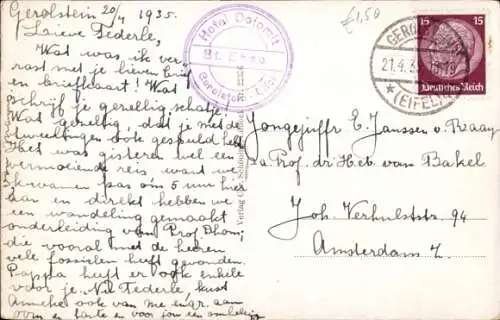 Gerolstein 20/4 1935.
Lieve Federle,
Wat was ik ver-
rast met je lieven brief
en briefkaart! Wat
schrijf je gezellig schatje!
Wat gezellig, dat je met de
tweelingen ook gespeeld hebt
Het was gisteren wel een
vermoeiende reis, want we
kwamen pas om 5 uur hier
aan en direkt hebben we
een wandeling gemaakt
onder leiding van Prof Dhom;
die vooral met de heeren
vele fossielen heeft gevonden.
Pappa heeft er ook enkele
voor je. Nu Federle, kust
Anneke ook van me en gr. aan
oom en tante en voor jou een
Hotel Dolomit
Gerolstein
€1,50
15 15
Deutsches Reich
GEROLSTEIN
21.4.3
(EIFEL)
Verlag
Jongejuffr E. Janssen v. Raay
p/a Prof. dr H. C. van Bakel
Joh. Verhulststr. 94
Amsterdam Z.